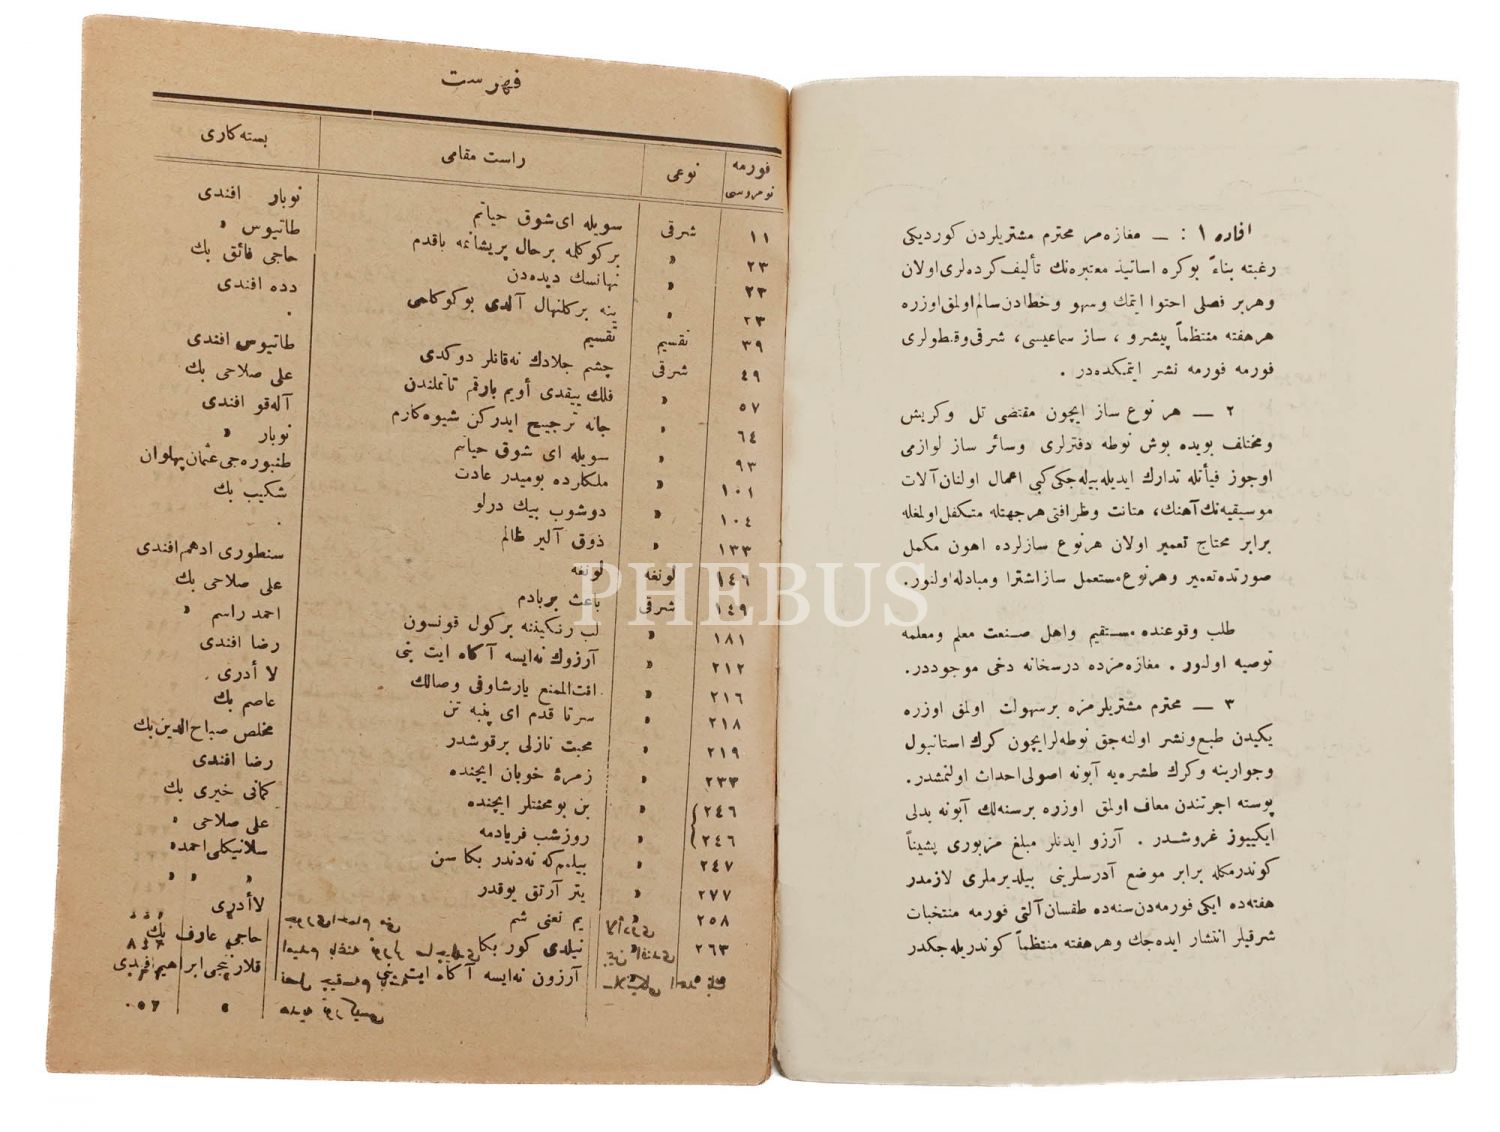 افاده ١ : — مغازه‌مز محترم مشتریلردن كوردیكی
رغبته بناءً بوكره اساتیذ معتبره‌نك تألیف كرده‌لری اولان
وهربر فصلی احتوا ایتمك وسهو وخطادن سالم اولمق اوزره
هرهفته منتظماً پیشرو ، ساز سماعیسی، شرقی وقطولری
فورمه فورمه نشر ایتمكده‌در .
٢ — هر نوع ساز ایچون مقتضی تل وكریش
ومختلف بویده بوش نوطه دفترلری وسائر ساز لوازمی
اوجوز فیأتله تدارك ایدیله‌بیله‌جكی كبی اعمال اولنان آلات
موسیقیه‌نك آهنك، متانت وظرافتی هرجهتله متكفل اولمغله
برابر محتاج تعمیر اولان هرنوع سازلرده اهون مكمل
صورتده تعمیر وهرنوع مستعمل ساز اشترا ومبادله اولنور.
طلب وقوعنده مستقیم واهل صنعت معلم ومعلمه
توصیه اولنور . مغازه‌مزده درسخانه دخی موجوددر.
٣ — محترم مشتریلرمزه برسهولت اولمق اوزره
یكیدن طبع ونشر اولنه‌جق نوطه‌لرایچون كرك استانبول
وجوارینه وكرك طشره‌یه آبونه اصولی احداث اولنمشدر.
پوسته اجرتندن معاف اولمق اوزره برسنه‌لك آبونه بدلی
ایكییوز غروشدر . آرزو ایدنلر مبلغ مزبوری پشیناً
كوندرمكله برابر موضع آدرسلرینی بیلدیرملری لازمدر
هفته‌ده ایكی فورمه‌دن سنه‌ده طقسان آلتی فورمه منتخبات
شرقیلر انتشار ایده‌جك وهرهفته منتظماً كوندریله‌جكدر
فهرست
فورمه نومروسی نوعی راست مقامی بسته‌كاری
١١ شرقی سویله ای شوق حیاتم نوبار افندی
٢٣ » بركوكلمه برحال پریشانمه باقدم طاتیوس »
٢٣ » نهانسك دیده‌دن حاجی فائق بك
٢٣ » ینه بركلنهال آلدی بوكوكلمی دده افندی
٣٩ تقسیم تقسیم طاتیوس افندی
٤٩ شرقی چشم جلادك نه‌قانلر دوكدی علی صلاحی بك
٥٧ » فلك ییقدی أویم بارقم آله‌قو افندی
٦٤ » جانه ترجیح ایدركن شیوه‌كارم نوبار »
٩٣ » سویله ای شوق حیاتم طنبوره‌جی عثمان پهلوان
١٠١ » ملكلرده بومیدر عادت شكیب بك
١٠٤ » دوشوب بیك درلو
١٣٣ » ذوق آلیر ظالم سنطوری ادهم افندی
١٤٦ لونغه لونغه علی صلاحی بك
١٤٩ شرقی باعث بربادم احمد راسم »
١٨١ » لب رنكیننه بركول قونسون رضا افندی
٢١٢ » آرزوك نه‌ایسه آكاه ایت بنی لا أدری
٢١٦ » عاصم بك
٢١٨ » سرتا قدم ای پنبه تن مخلص صباح‌الدین بك
٢١٩ » محبت نازلی برقوشدر رضا افندی
٢٣٣ » زمرۀ خوبان ایچنده كمانی خیری بك
٢٤٦ » بن بومحنتلر ایچنده علی صلاحی »
٢٤٦ » روزشب فریادمه سلانیكلی احمد »
٢٤٧ » بیلمم‌كه نه‌دندر بكا سن » » »
٢٧٧ » یتر آرتق یوقدر لا أدری
٢٥٨ یم نعنی شم
٢٦٣ نیلدی كور بكا حاجی عارف بك
آرزون نه‌ایسه آكاه ایت بنی
PHEBUS